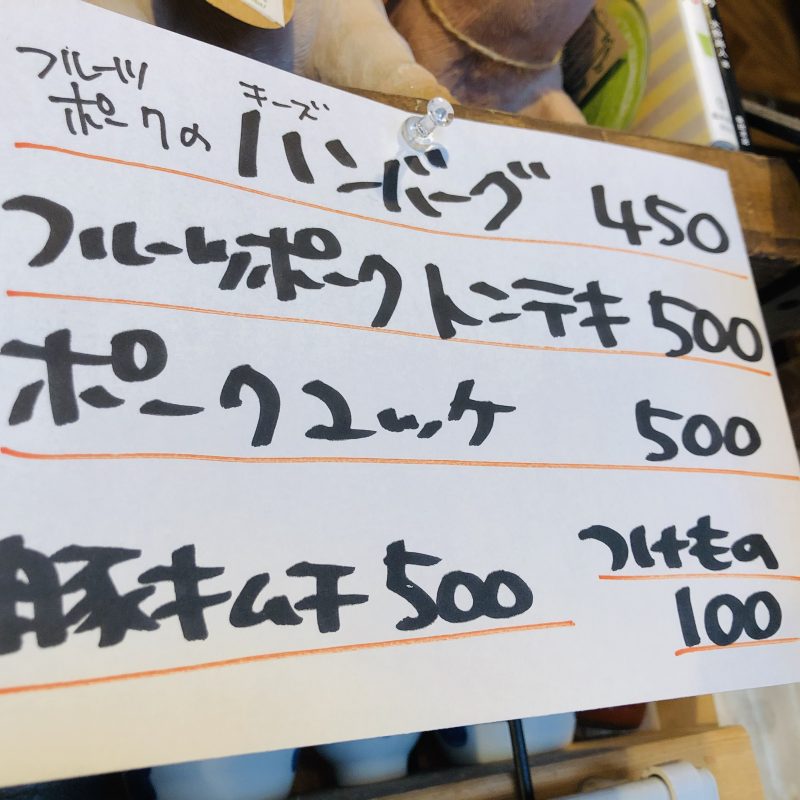 フルーツポークの キーズ ハンバーグ 450
フルーツポーク トンテキ 500
ポークユッケ 500
豚キムチ 500
つけもの
100